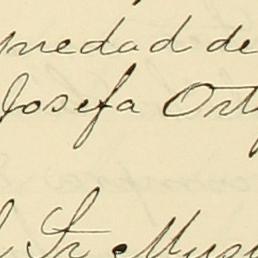 medad de
Josefa Ort
Sr Mus